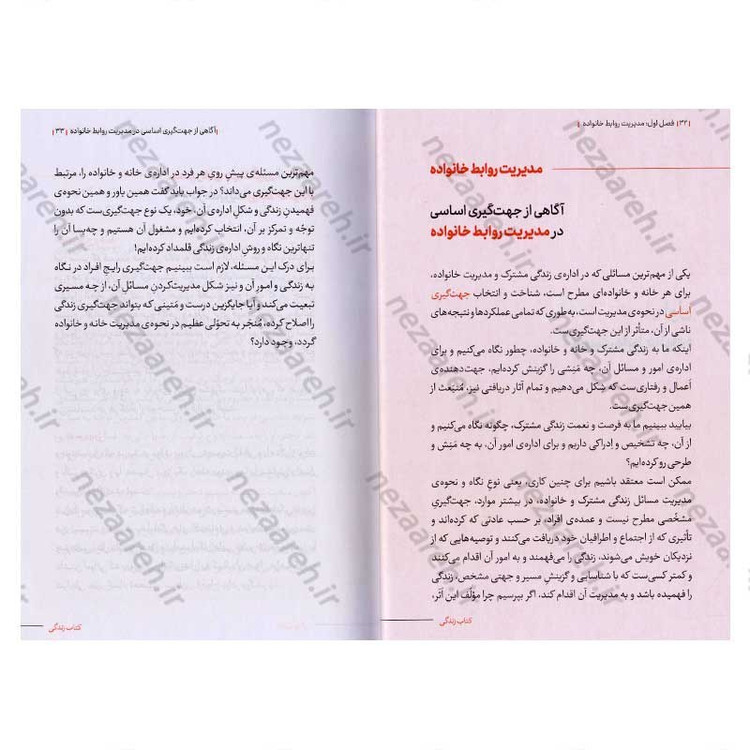 |۳۲| فصل اول؛ مدیریت روابط خانواده|
مدیریت روابط خانواده
آگاهی از جهت‌گیری اساسی
در مدیریت روابط خانواده
یکی از مهم‌ترین مسائلی که در اداره‌ی زندگی مشترک و مدیریت خانواده،
برای هر خانه و خانواده‌ای مطرح است، شناخت و انتخاب جهت‌گیری
اساسی در نحوه‌ی مدیریت است، به‌طوری که تمامی عملکردها و نتیجه‌های
ناشی از آن، متأثر از این جهت‌گیری‌ست.
اینکه ما به زندگی مشترک و خانه و خانواده، چطور نگاه می‌کنیم و برای
اداره‌ی امور و مسائل آن، چه مَنِشی را گزینش کرده‌ایم، جهت‌دهنده‌ی
اَعمال و رفتاری‌ست که شکل می‌دهیم و تمام آثار دریافتی نیز، مُنبَعِث از
همین جهت‌گیری‌ست.
بیایید ببینیم ما به فرصت و نعمت زندگی مشترک، چگونه نگاه می‌کنیم و
از آن، چه تشخیص و اِدراکی داریم و برای اداره‌ی امور آن، به چه مَنِش و
طرحی رو کرده‌ایم؟
ممکن است معتقد باشیم برای چنین کاری، یعنی نوع نگاه و نحوه‌ی
مدیریت مسائل زندگی مشترک و خانواده، در بیشتر موارد، جهت‌گیریِ
مُشخّصی مطرح نیست و عمده‌ی افراد، بر حسب عادتی که کرده‌اند و
تأثیری که از اجتماع و اطرافیان خود دریافت می‌کنند و توصیه‌هایی که از
نزدیکان خویش می‌شوند، زندگی را می‌فهمند و به امور آن اقدام می‌کنند
و کمتر کسی‌ست که با شناسایی و گزینشِ مسیر و جهتی مشخص، زندگی
را فهمیده باشد و به مدیریت آن اقدام کند، اگر بپرسیم چرا مؤلّف این اَثَر،
کتاب زندگی
|آگاهی از جهت‌گیری اساسی در مدیریت روابط خانواده |۳۳|
مهم‌ترین مسئله‌ی پیشِ رویِ هر فرد در اداره‌ی خانه و خانواده را، مرتبط
با این جهت‌گیری می‌داند؟ در جواب باید گفت همین باور و همین نحوه‌ی
فهمیدنِ زندگی و شکلِ اداره‌ی آن، خود، یک نوع جهت‌گیری‌ست که بدون
توجّه و تمرکز بر آن، انتخاب کرده‌ایم و مشغول آن هستیم و چه‌بسا آن را
تنهاترین نگاه و روشِ اداره‌ی زندگی قلمداد کرده‌ایم!
برای درک این مسئله، لازم است ببینیم جهت‌گیری رایجِ افراد در نگاه
به زندگی و امور آن و نیز شکل مدیریت‌کردنِ مسائل آن، از چه مسیری
تبعیت می‌کند و آیا جایگزین درست و مَتینی که بتواند جهت‌گیری زندگی
را اصلاح کرده، مُنجَر به تحوّلی عظیم در نحوه‌ی مدیریت خانه و خانواده
گردد، وجود دارد؟
کتاب زندگی
nezaareh.ir